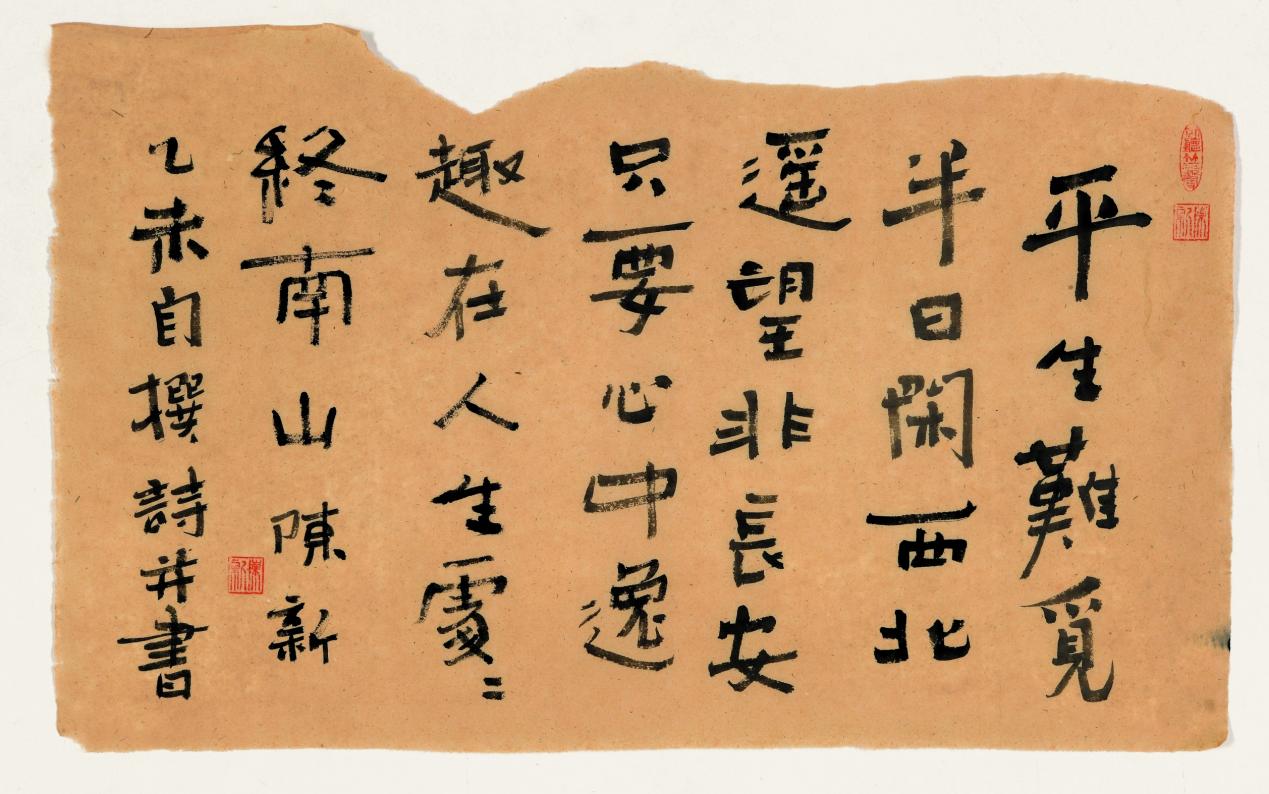 平生難覓
半日閑西北
遥望非長安
只要心中逸
趣在人生處〻
終南山陳新
乙未自撰詩并書